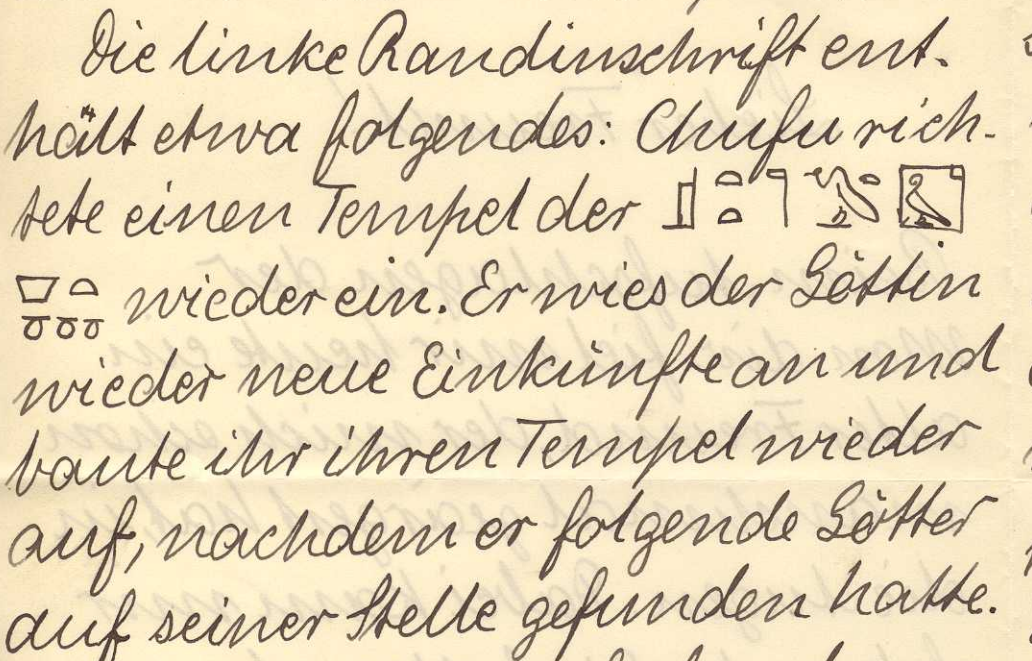 Die linke Randinschrift ent-
hält etwa folgendes: Chufu rich-
tete einen Tempel der
wieder ein. Er wies der Göttin
wieder neue Einkünfte an und
baute ihr ihren Tempel wieder
auf, nachdem er folgende Götter
auf seiner Stelle gefunden hatte.